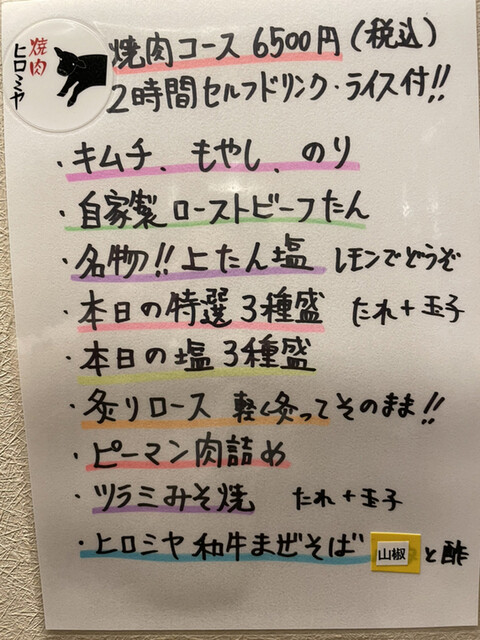 焼肉 ヒロミヤ
焼肉コース 6500円(税込)
2時間セルフドリンク・ライス付!!
・キムチ、もやし、のり
・自家製 ローストビーフたん
・名物!!上たん塩 レモンでどうぞ
・本日の特選3種盛 たれ+玉子
・本日の塩3種盛
・炙りロース 軽く炙ってそのまま!!
・ピーマン肉詰め
・ツラミみそ焼 たれ+玉子
・ヒロミヤ和牛まぜそば 山椒と酢